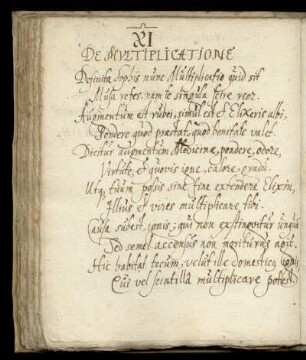 XI
DE MULTIPLICATIONE
Definita Sophis nunc Multiplicatio quid sit
Musa refes. nam te singula scire reor.
Augmentum est rubei, simul est et Elixeris albi,
Pondere quod praestat, quod bonitate valet.
Dicitur augmentum Medicinae, pondere, odore,
Virtute, et quovis igne, colore, gradu.
Utque tuum possis sine fine extendere Elixir,
Illius et vires multiplicare tibi.
Causa subest, ignis: qui non exstinguitur unquam
Sed semel accensus non moriturus agit.
Hic habitat tecum, velut ille domesticus ignis,
Cui vel scintilla multiplicare potest.